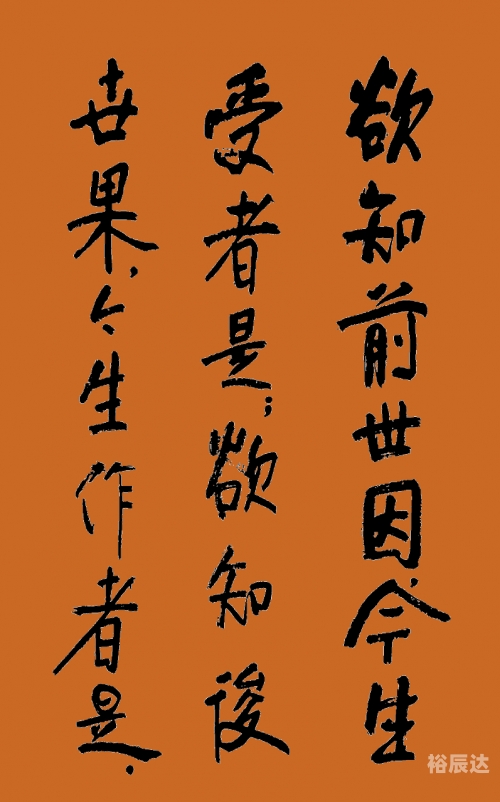 欲知前世因，今生
受者是；欲知後
世果，今生作者是．
裕辰达